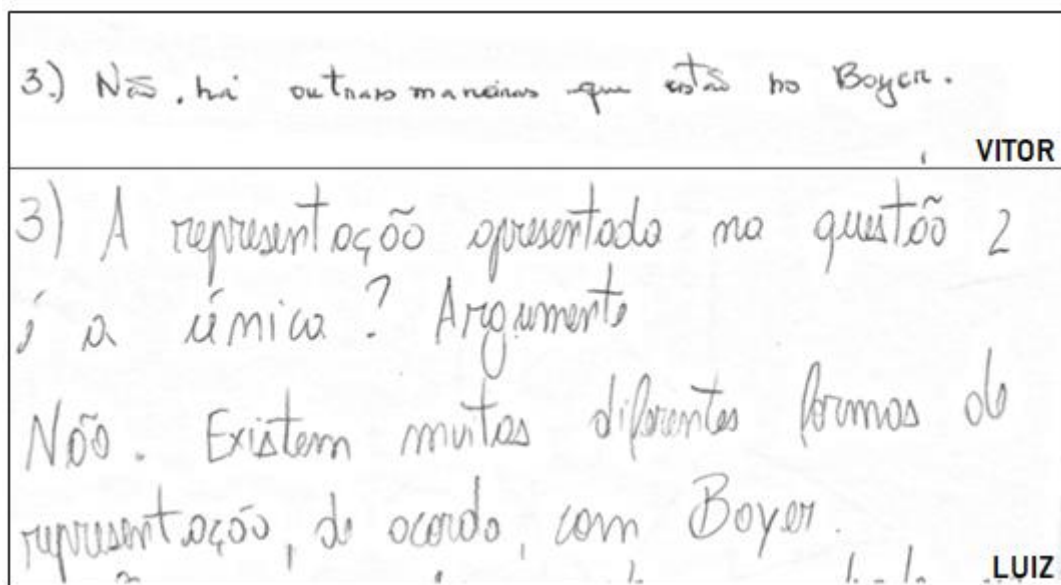 3.) Não, há outras maneiras que estão no Boyer.
VITOR
3) A representação apresentada na questão 2
é a única? Argumente
Não. Existem muitas diferentes formas de
representação, de acordo, com Boyer.
LUIZ